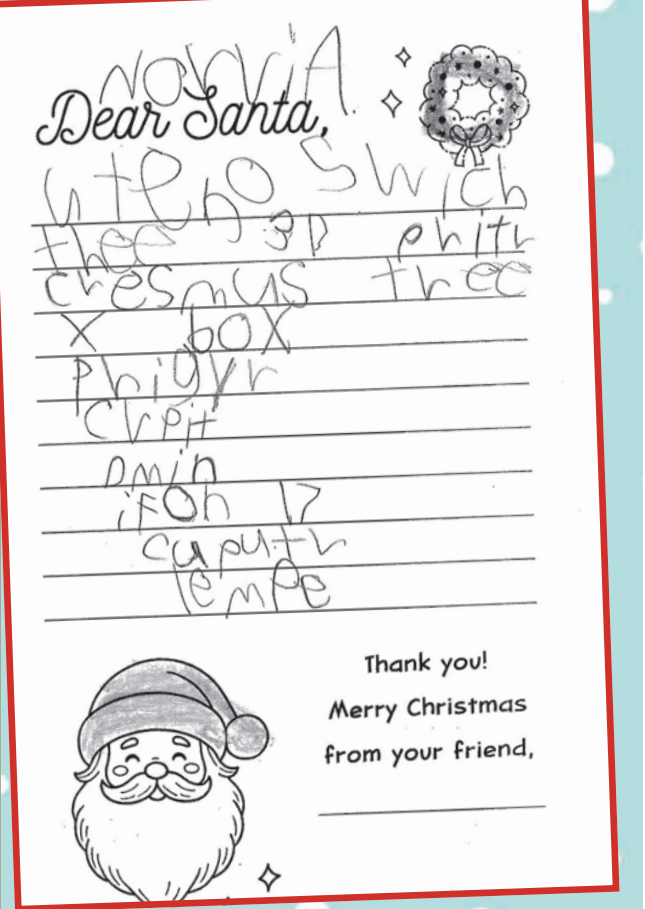 NarviA
Dear Santa,
uteno Swich
thee 3D phitr
cresmus tree
X box
phigyr
CVPit
pmin
ifoh 17
caputr
lempe
Thank you!
Merry Christmas
from your friend,